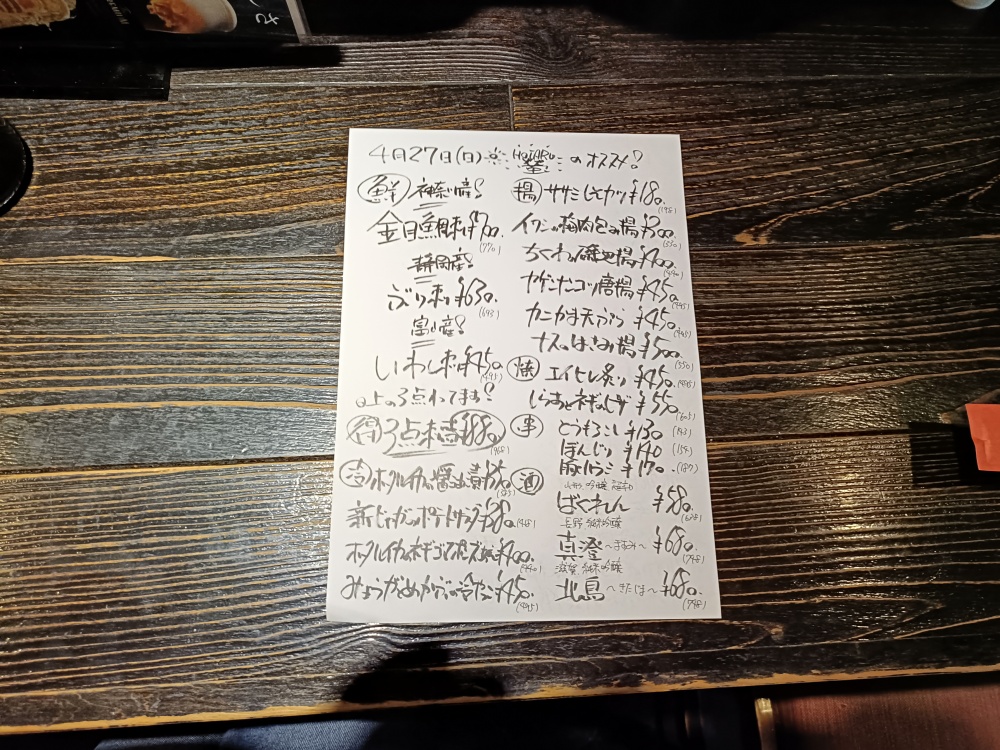 4月27日(日) HOTARU 蛍 のオススメ!
鮮 神奈川産!
金目鯛刺 ¥700.
(770)
静岡産!
ぶり刺 ¥630.
(693)
富山産!
いわし刺 ¥450.
(495)
以上の3点わてます?
得 3点盛 ¥880
(968)
ホタルイカの醤油漬 ¥350.
(385)
新じゃがのポテトサラダ ¥380.
ホタルイカのネギゴマポン酢 ¥400.
(440)
みょうがとめかぶの冷やっこ ¥450.
(495)
揚 ササミしそカツ ¥180.
(198)
イワシの梅肉包み揚 ¥500.
(550)
ちくわの磯辺揚 ¥400.
(440)
ヤゲンナンコツ唐揚 ¥450.
(495)
カニかま天ぷら ¥450.
(495)
ナスのはさみ揚 ¥500.
(550)
焼 エイヒレ炙り ¥450.
(495)
しらすとネギのピザ ¥550.
(605)
串 とうもろこし ¥130 (143)
ぼんじり ¥140 (154)
豚ハラミ ¥170. (187)
酒
ばくれん ¥580.
長野 純米吟醸
真澄 〜ますみ〜 ¥680.
(748)
滋賀 純米吟醸
北島 〜きたじま〜 ¥680.
(748)